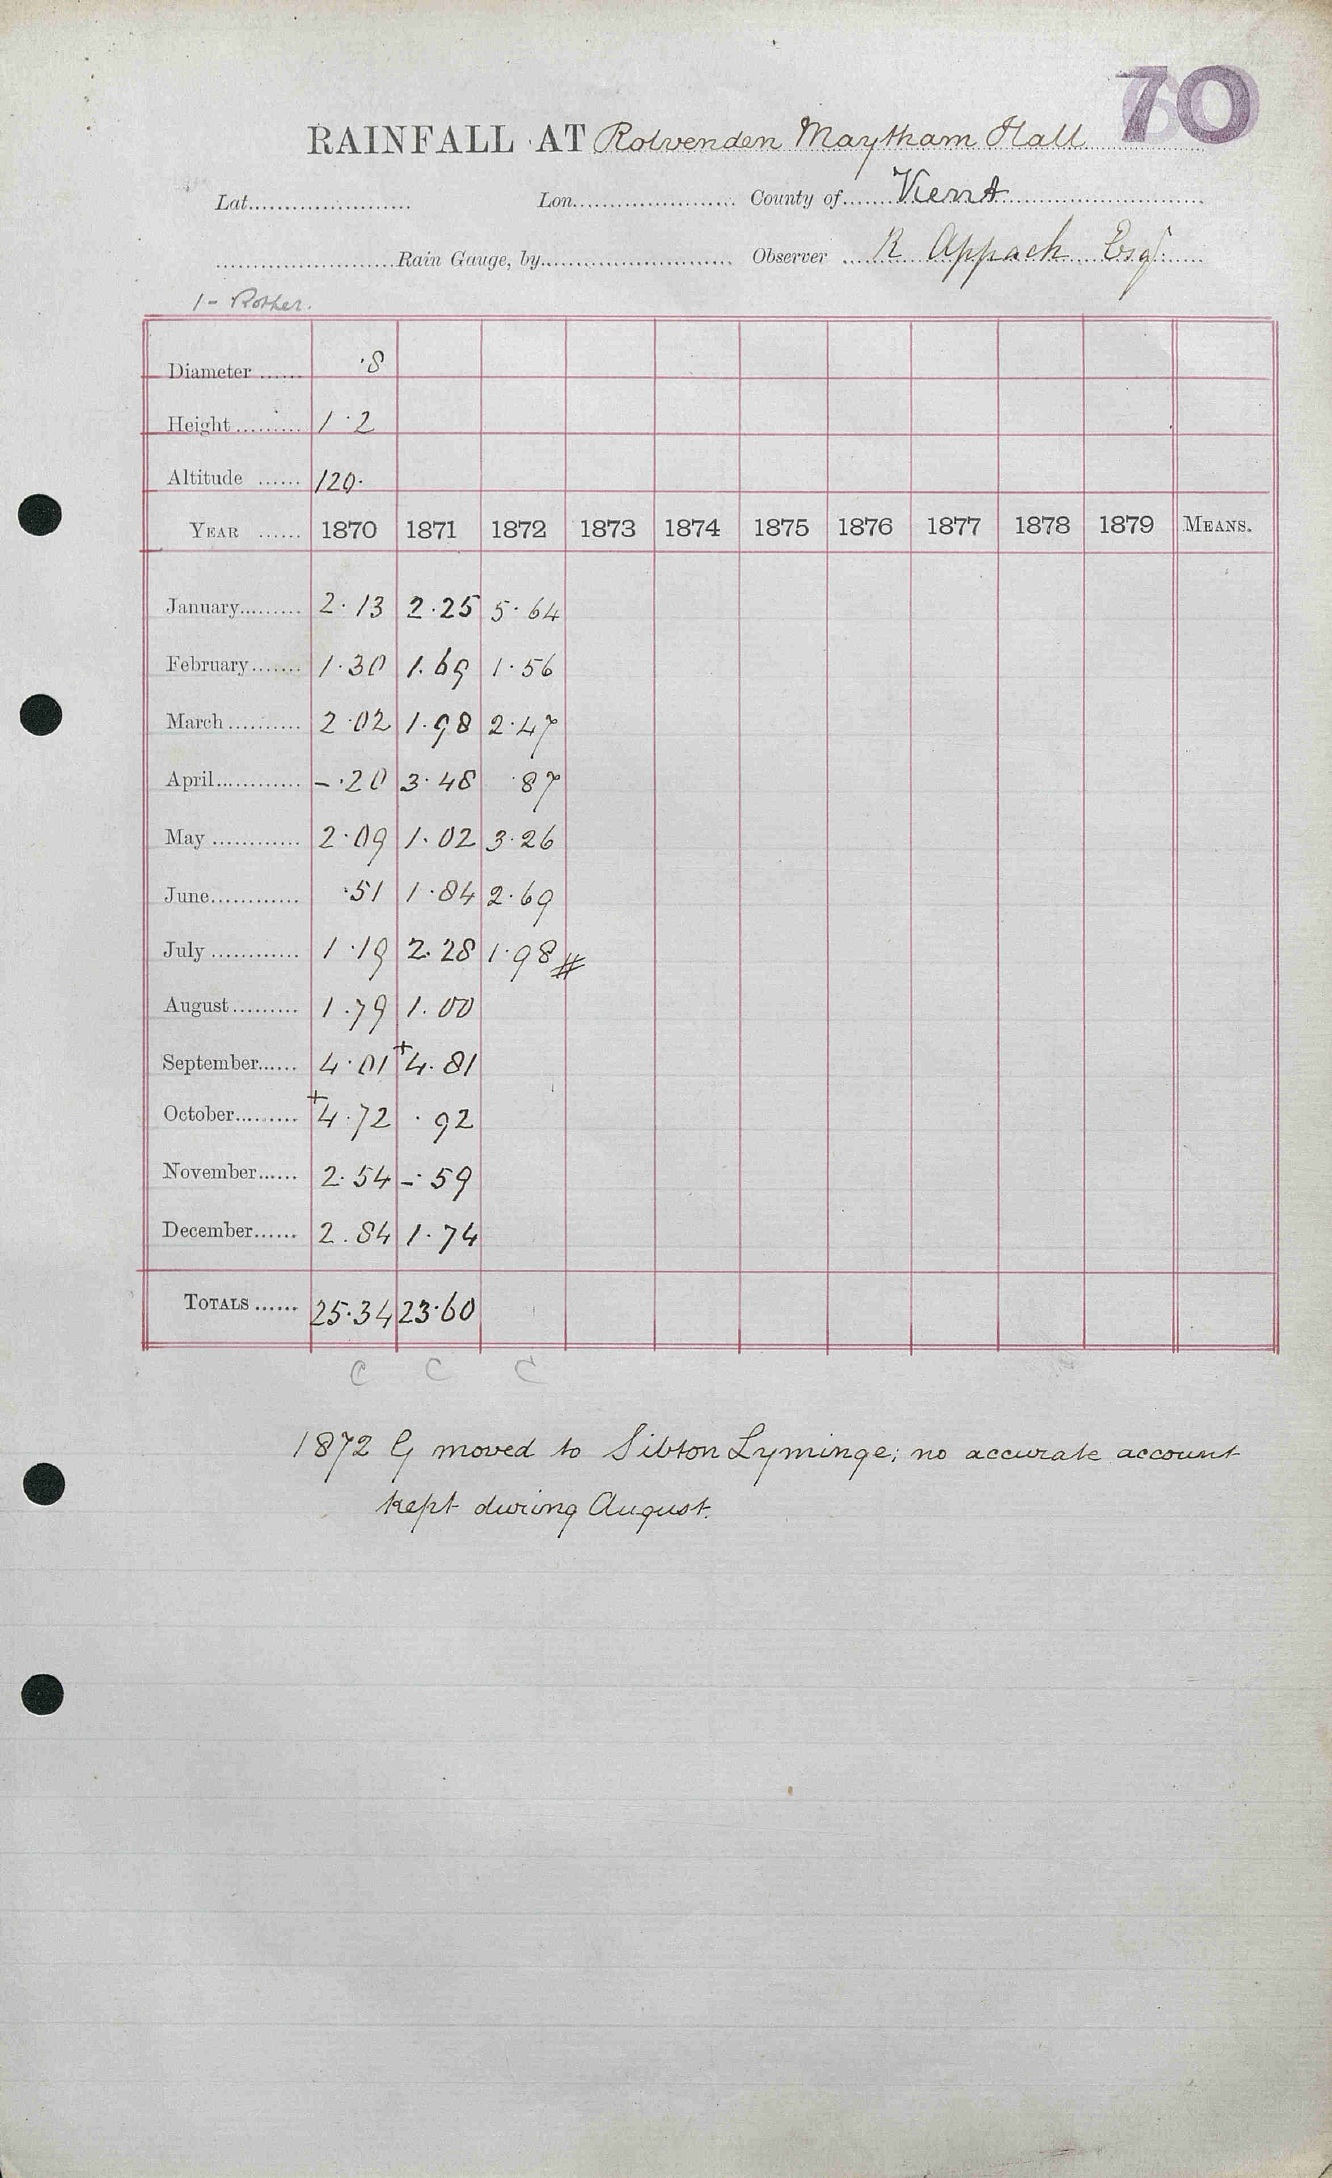 70
RAINFALL AT Rolvenden Maytham Hall
Lat. Lon. County of Kent
Rain Gauge, by Observer R Appach Esqr
1 - Rother.
Diameter ·8
Height 1·2
Altitude 120·
YEAR 1870 1871 1872 1873 1874 1875 1876 1877 1878 1879 MEANS.
January 2·13 2·25 5·64
February 1·30 1·69 1·56
March 2·02 1·98 2·47
April -·20 3·48 ·87
May 2·09 1·02 3·26
June ·51 1·84 2·69
July 1·19 2·28 1·98 #
August 1·79 1·00
September 4·01 +4·81
October +4·72 ·92
November 2·54 -·59
December 2·84 1·74
TOTALS 25·34 23·60
C C C
1872 G moved to Sibton Lyminge; no accurate account
kept during August.